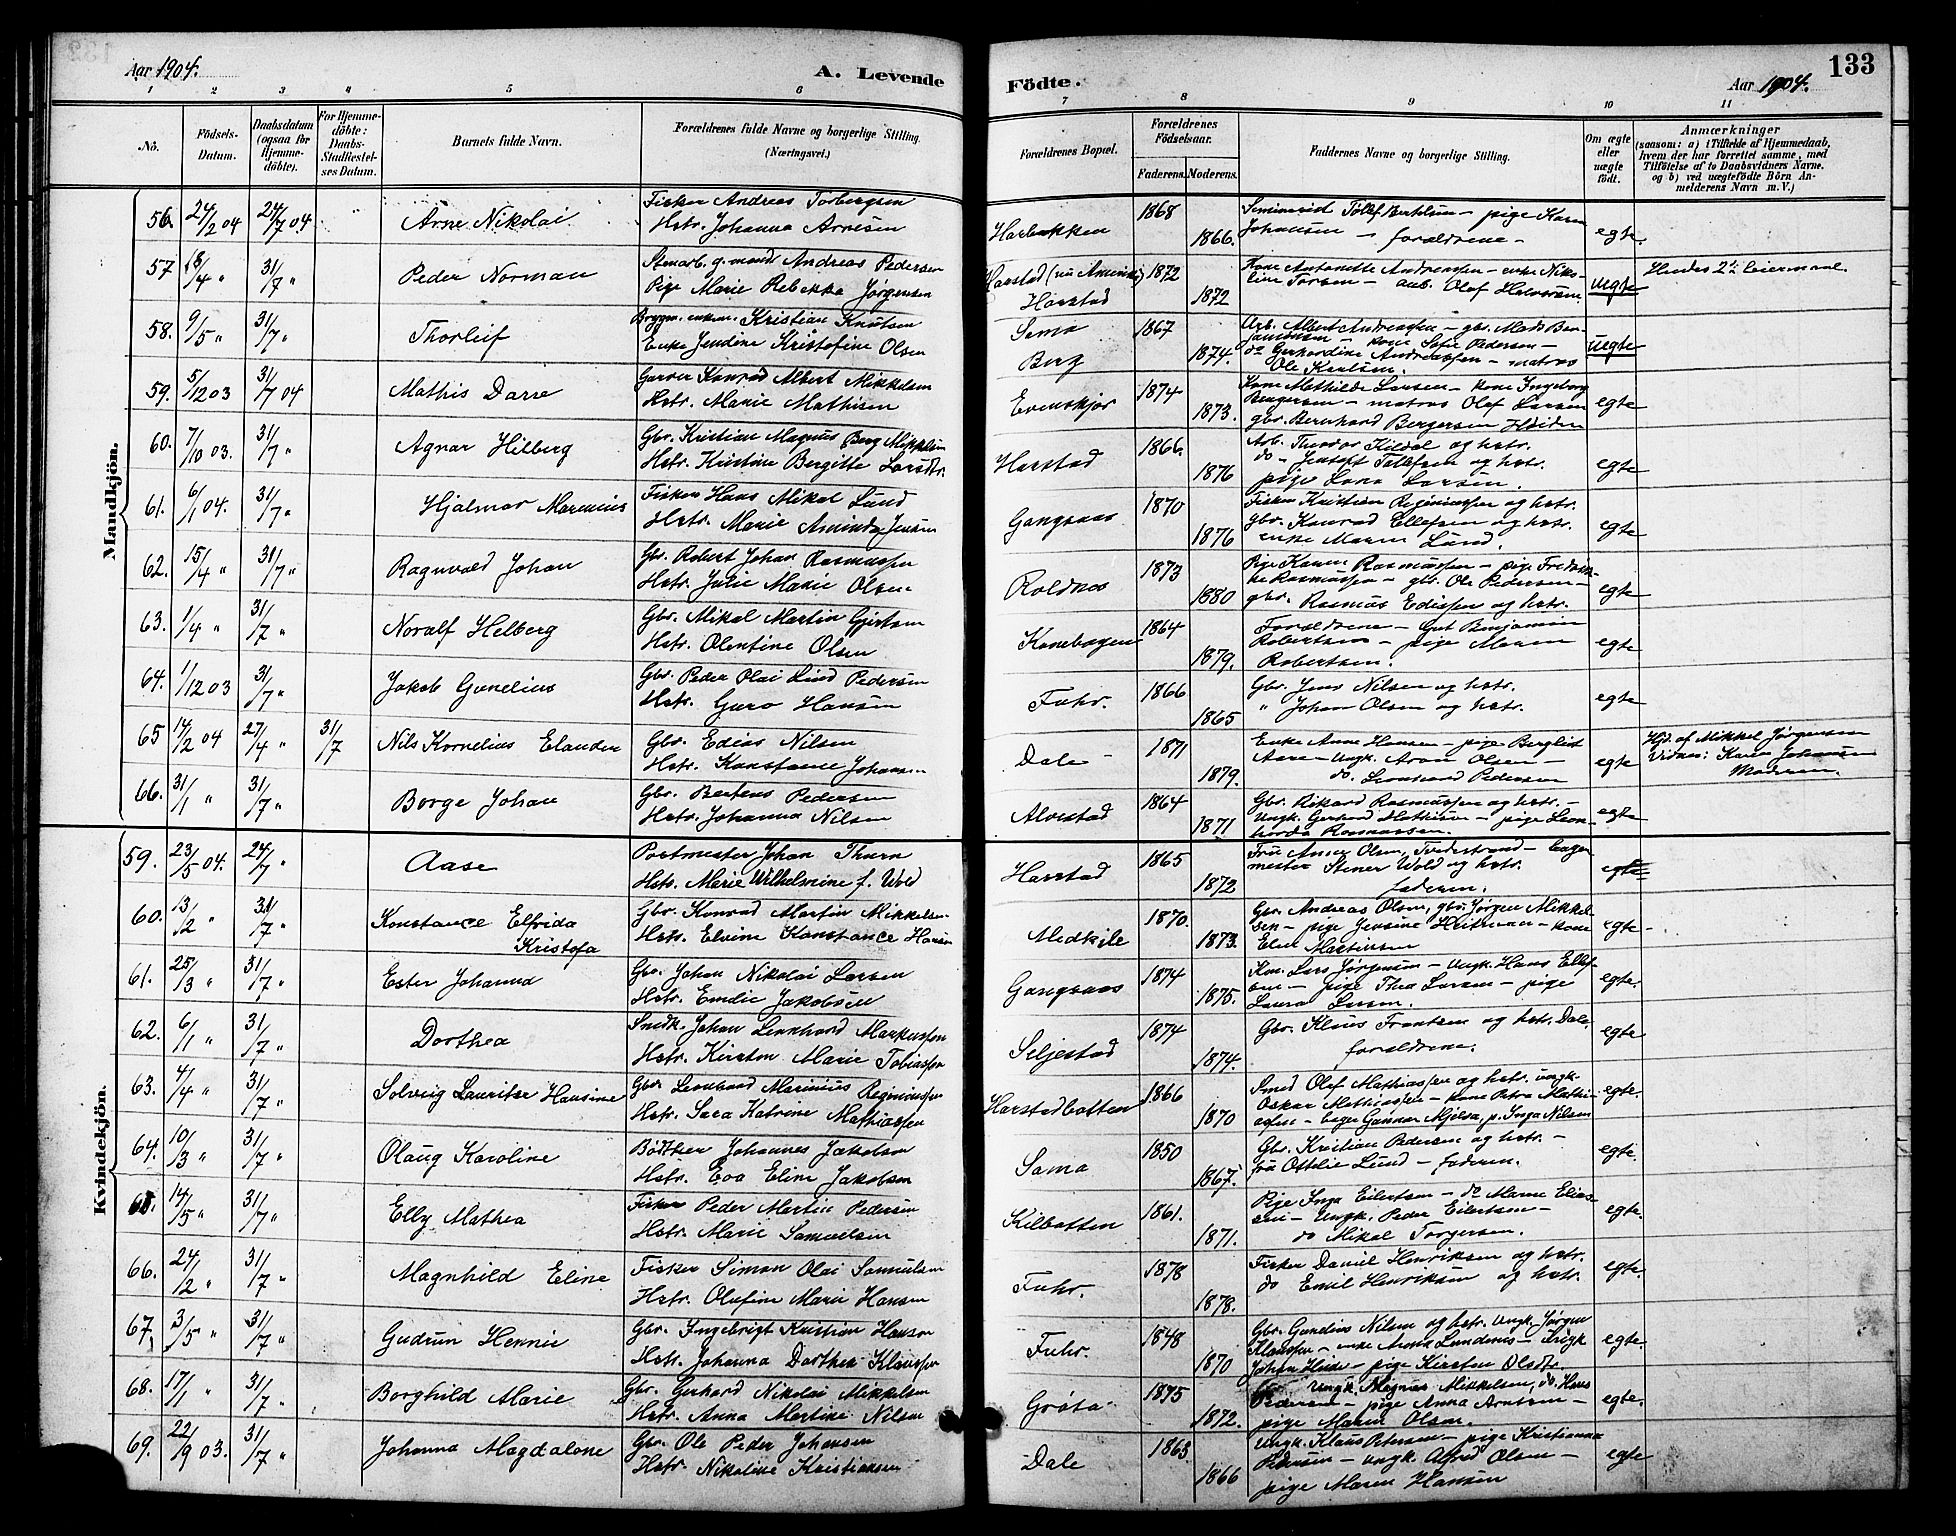 Aar 1904.
A. Levende
Födte.
Aar 1904.
133
1 2 3 4 5 6 7 8 9 10 11
No.
Födsels-
Datum.
Daabsdatum
(ogsaa for
Hjemme-
döbte).
For Hjemme-
döbte:
Daabs-
Stadfæstel-
ses Datum.
Barnets fulde Navn.
Forældrenes fulde Navne og borgerlige Stilling.
(Næringsvei.)
Forældrenes Bopæl.
Forældrenes
Födselsaar.
Faderens. Moderens.
Faddernes Navne og borgerlige Stilling.
Om ægte
eller
uægte
födt.
Anmærkninger
(saasom: a) i Tilfælde af Hjemmedaab,
hvem der har forrettet samme, med
Tilföielse af to Daabsvidners Navne.
og b) ved uægtefödte Börn An-
melderens Navn m. V.)
Mandkjön.
56. 24/2 04 24/7 04 Arne Nikolai Fisker Andreas Torbergsen Harbakken 1868 pige Karen
Hstr. Johanna Arnesen 1866. Johansen – forældrene – egte.
57 18/4 " 31/7 " Peder Norman Andreas Pedersen Harstad 1872 Kone Antonette Andreassen – enke Niko-
Pige Marie Rebekka Jørgensen Harstad 1872 line Torsen – arb. Olof Halvorsen uegte Hendes 2det leiermaal.
58. 9/5 " 31/7 " Thorleif Kristian Knutsen Sama 1867 Arb. Albert Andreassen – gbr. Mads Ben-
Enke Jendine Kristofine Olsen Berg 1874. jaminsen – kone Sofie Pedersen – uegte
do Gerhardine Andreassen – matros
Ole Karlsen.
59. 5/12 03 31/7 04 Mathis Darre Garver Konrad Albert Mikkelsen Evenskjær 1874 Kone Mathilde Larsen – kone Ingeborg
Hstr. Marie Mathisen 1873. Bergersen – matros Olef Larsen egte
gbr. Bernhard Bergersen
60. 7/10 03. 31/7 " Agnar Hilberg Gbr. Kristian Magnus Berg Mikkelsen Harstad 1866. Arb. Teodor Kildal og hstr.
Hstr. Kristine Bergitte Larsdtr. 1876 do Jentoft Tollefsen og hstr. egte
pige Lena Larsen.
61. 6/1 04. 31/7 " Hjalmar Marenius Fisker Hans Mikal Lund Gangsaas 1870 Fisker Kristian Reginiussen og hstr.
Hstr. Marie Aminda Jensen 1876 gbr. Konrad Ellefsen og hstr. egte
enke Maren Lund.
62. 15/4 " 31/7 " Ragnvald Johan Gbr. Robert Johan Rasmussen Roldnes 1873 Pige Karen Rasmussen – pige Fredrik-
Hstr. Julie Marie Olsen. 1880 ke Rasmussen – gbr. Ole Pedersen – egte
gbr. Rasmus Edissen og hstr.
63. 1/4 " 31/7 " Noralf Helberg Gbr. Mikal Martin Gjertsen Kanebogen 1864 Forældrene – Benjamin
Hstr. Olentine Olsen 1879. Robertsen – pige Maren egte
Robertsen.
64. 1/12 03 31/7 " Jakob Gunelius Gbr. Peder Olai Lind Pedersen Fuhr. 1866 Gbr. Jens Nilsen og hstr.
Hstr. Guro Hansen 1865 " Johan Olsen og hstr. egte
65 14/2 04 27/4 " 31/7 Nils Kornelius Elander Gbr. Edias Nilsen Dale 1871 Enke Anne Hansen – pige Berglist Hjd. af Mikkel Jørgensen
Hstr. Konstance Johansen 1879. Aase – ungk. Aron Olsen – egte Vidner: Karen Johansen
do. Leonhard Pedersen Moderen.
66. 31/1 " 31/7 " Borge Johan Gbr. Bertens Pedersen Alvestad 1864 Gbr. Rikard Rasmussen og hstr. –
Hstr. Johanna Nilsen 1871 Ungk. Gerhard – pige Leon- egte
harda Rasmussen.
Kvindekjön.
59. 23/5 04. 24/7 " Aase Postmester Johan Thurn Harstad 1865 Fru Anna Olsen, Tvedestrand – bager-
Hstr. Marie Wilhelmine f. Wold 1872 mester Stener Wold og hstr. egte
faderen.
60. 13/2 " 31/7 " Konstance Elfrida Gbr. Konrad Martin Mikkelsen Medkile 1870. Gbr. Andreas Olsen, gbr. Jørgen Mikkel-
Kristofa Hstr. Elvine Konstance Hansen 1873. sen – pige Jensine Heitman – kone egte.
Elen Martinsen
61. 25/3 " 31/7 " Ester Johanna Gbr. Johan Nikolai Larsen Gangsaas 1874 Lars Jørgensen – ungk. Hans Ellef-
Hstr. Emelie Jakobsen 1875. sen – pige Thea Larsen – pige egte.
Laura Larsen.
62. 6/1 " 31/7 " Dorthea Snedk. Johan Lennhard Markussen Seljestad 1874 Gbr. Klaus Frantsen og hstr. Dale,
Hstr. Kirsten Marie Tobiassen 1874. forældrene. egte
63. 4/4 " 31/7 " Solveig Lauritze Hansine Gbr. Leonhard Marinius Reginiussen Harstadbotten 1866 Smed Olef Mathiassen og hstr. ungk.
Hstr. Sara Katrine Mathiassen 1870 Oskar Mathiassen – kone Petra Mathi- egte.
assen – bager Gunnar Mjelsa, p. Inga Nilsen
64. 10/3 " 31/7 " Olaug Karoline Bødker Johannes Jakobsen Sama 1850 Gbr. Kristian Pedersen og hstr. –
Hstr. Eva Eline Jakobsen 1867. fru Ottilie Lund – faderen. egte.
65. 14/5 " 31/7 " Elly Mathea Fisker Peder Martin Pedersen Kilbotten 1861. Pige Inga Eilertsen – do Marne Elias-
Hstr. Marie Samuelsen 1871. sen – ungk. Peder Eilertsen – egte.
do Mikal Torgersen.
66. 24/12 " 31/7 " Magnhild Eline Fisker Simon Olai Samuelsen Fuhr. 1878 Fisker Daniel Henriksen og hstr.
Hstr. Olufine Marie Hansen 1878. do Emil Henriksen og hstr. egte.
67. 3/5 " 31/7 " Gudrun Hennie Gbr. Ingebrigt Kristian Hansen Fuhr. 1848 Gbr. Gunelius Nilsen og hstr. ungk. Jørgen
Hstr. Johanna Dorthea Klaussen 1870 Klaussen – enke – ungk. egte.
Johan – pige Kirsten Olsdtr.
68. 17/1 " 31/7 " Borghild Marie Gbr. Gerhard Nikolai Mikkelsen Grøta 1875 Ungk. Magnus Mikkelsen, do. Hans
Hstr. Anna Martine Nilsen 1872. Pedersen – pige Anna Arntsen – egte.
pige Maren Olsen.
69. 22/9 03. 31/7 " Johanna Magdalone Gbr. Ole Peder Johansen Dale 1863 Ungk. Klaus Petersen – pige Kristianna
Hstr. Nikoline Kristiansen 1866 Pedersen – ungk. Alfred Olsen – egte
pige Maren Hansen